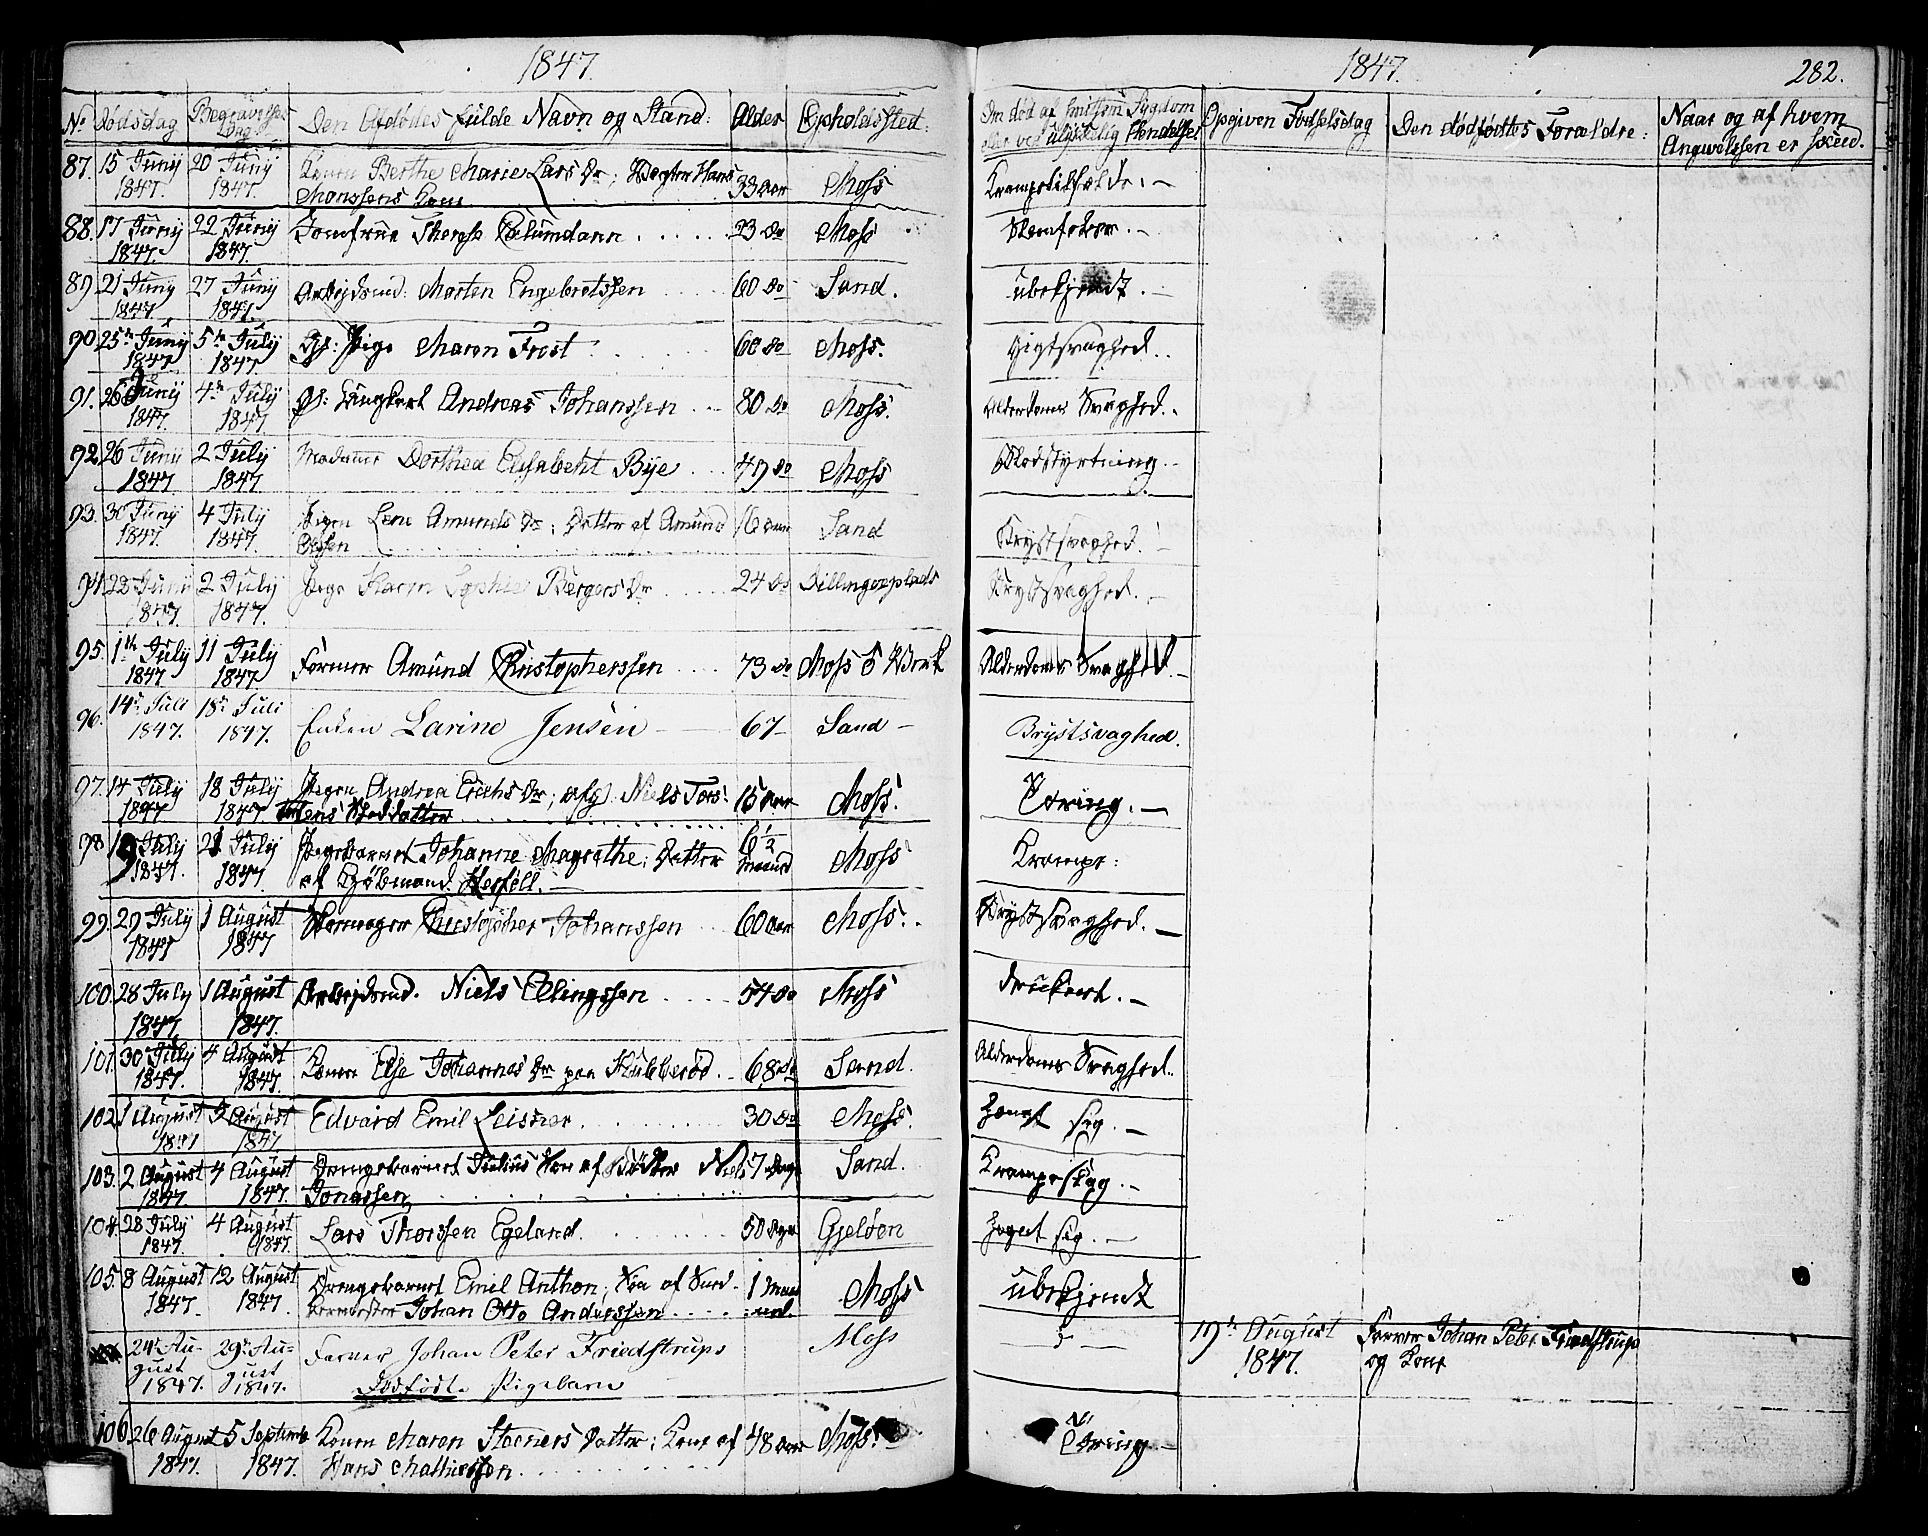 1847. 1847. 282.
No Dødsdag Begravelses Dag Den Afdødes fulde Navn og Stand: Alder Opholdssted: Om død af smitsom Sygdom eller ved ulykkelig Hendelse Opgiven Fødselsdag Den dødfødtes Forældre: Naar og af hvem Angivelsen er skeed.
87. 15 Juny 1847. 20 Juny 1847. Konen Berthe Marie Lars Dr; Vægter Hans
Monssens Kone 33 Aar Moss Krampetilfælde. —
88. 17 Juny 1847. 22 Juny 1847. Jomfrue Therese 23 Do Moss
89. 21 Juny 1847. 27 Juny 1847. Arbejdsmd: Morten Engebretssen 60 Do Sand. ubekjendt. —
90. 25de Juny 1847 5te July 1847 Pige Maren Frost 60 Do Moss. Gigtsvaghed.
91. 26 Juny 1847. 4de July 1847. Andreas Johanssen 80 Do Moss. Alderdoms Svaghed.
92. 26 Juny 1847 2 July 1847 Madame Dorthea Elisabeht Bye 49 Do Moss Blodstyrtning. —
93. 30 Juny 1847. 4 July 1847. Pigen Lene Amunds Dr; Datter af Amund
16 Aar Sand Brystsvaghed. —
94. 28 Juny 1847. 2 July 1847. Pige Karen Sophie Bergers Dr 24 Do Dillingøeplads Brystsvaghed. —
95. 1te July 1847 11 July 1847 Former Amund Christopherssen 73 Do Moss Værk Alderdoms Svaghed. —
96. 14de Juli 1847. 18de Juli 1847. Enken Larine Jensen 67 Sand Brystsvaghed.
97. 14 July 1847 18 July 1847 Pigen Andrea Erichs Dr; afg. Niels Tors-
tens Sted Datter 15 Aar Moss. Tæring. —
98. 19 July 1847. 21 July 1847. Pigebarnet Johanne Magrethe; Datter
af Kjøbmand 6 1/2 Maaned Moss Krampe:
99. 29 July 1847 1 August 1847 Christopher Johanssen 60 Aar Moss. Brystsvaghed. —
100. 28 July 1847. 1 August 1847. Arbejdsmd. Niels Ellingssen 54 Do Moss druknet. —
101. 30 July 1847. 4 August 1847. Konen Else Johannes Dr paa Kubberød. 68 Do Sand. Alderdoms Svaghed.
102. 1 August 1847 5 August 1847 Edvard Emil Leisner. 30 Do Moss. sig. —
103. 2 August 1847. 4 August 1847. Drengebarnet Julius Søn af Bødker Niels
Jonassen 7 Dage Sand. Krampeslag. —
104. 28 July 1847. 4 August 1847. Lars Thorssen Egeland. 50 Gjeløen sig. —
105. 8 August 1847. 12 August 1847. Drengebarnet Emil Anthon, Søn af
Johan Otto Anderssen 1 Maaned. Moss ubekjendt
24de August 1847. 29de August 1847. Farver Johan Peter Friedstrups
Dødfødt Pigebarn Moss — 19de August 1847. Farver Johan Peter Friedstrup
og Kone
106. 26 August 1847. 5 Septembr 1847. Konen Maren Steeners Datter; Kone af
Hans Mathiessen 48 Aar Moss. Tæring —